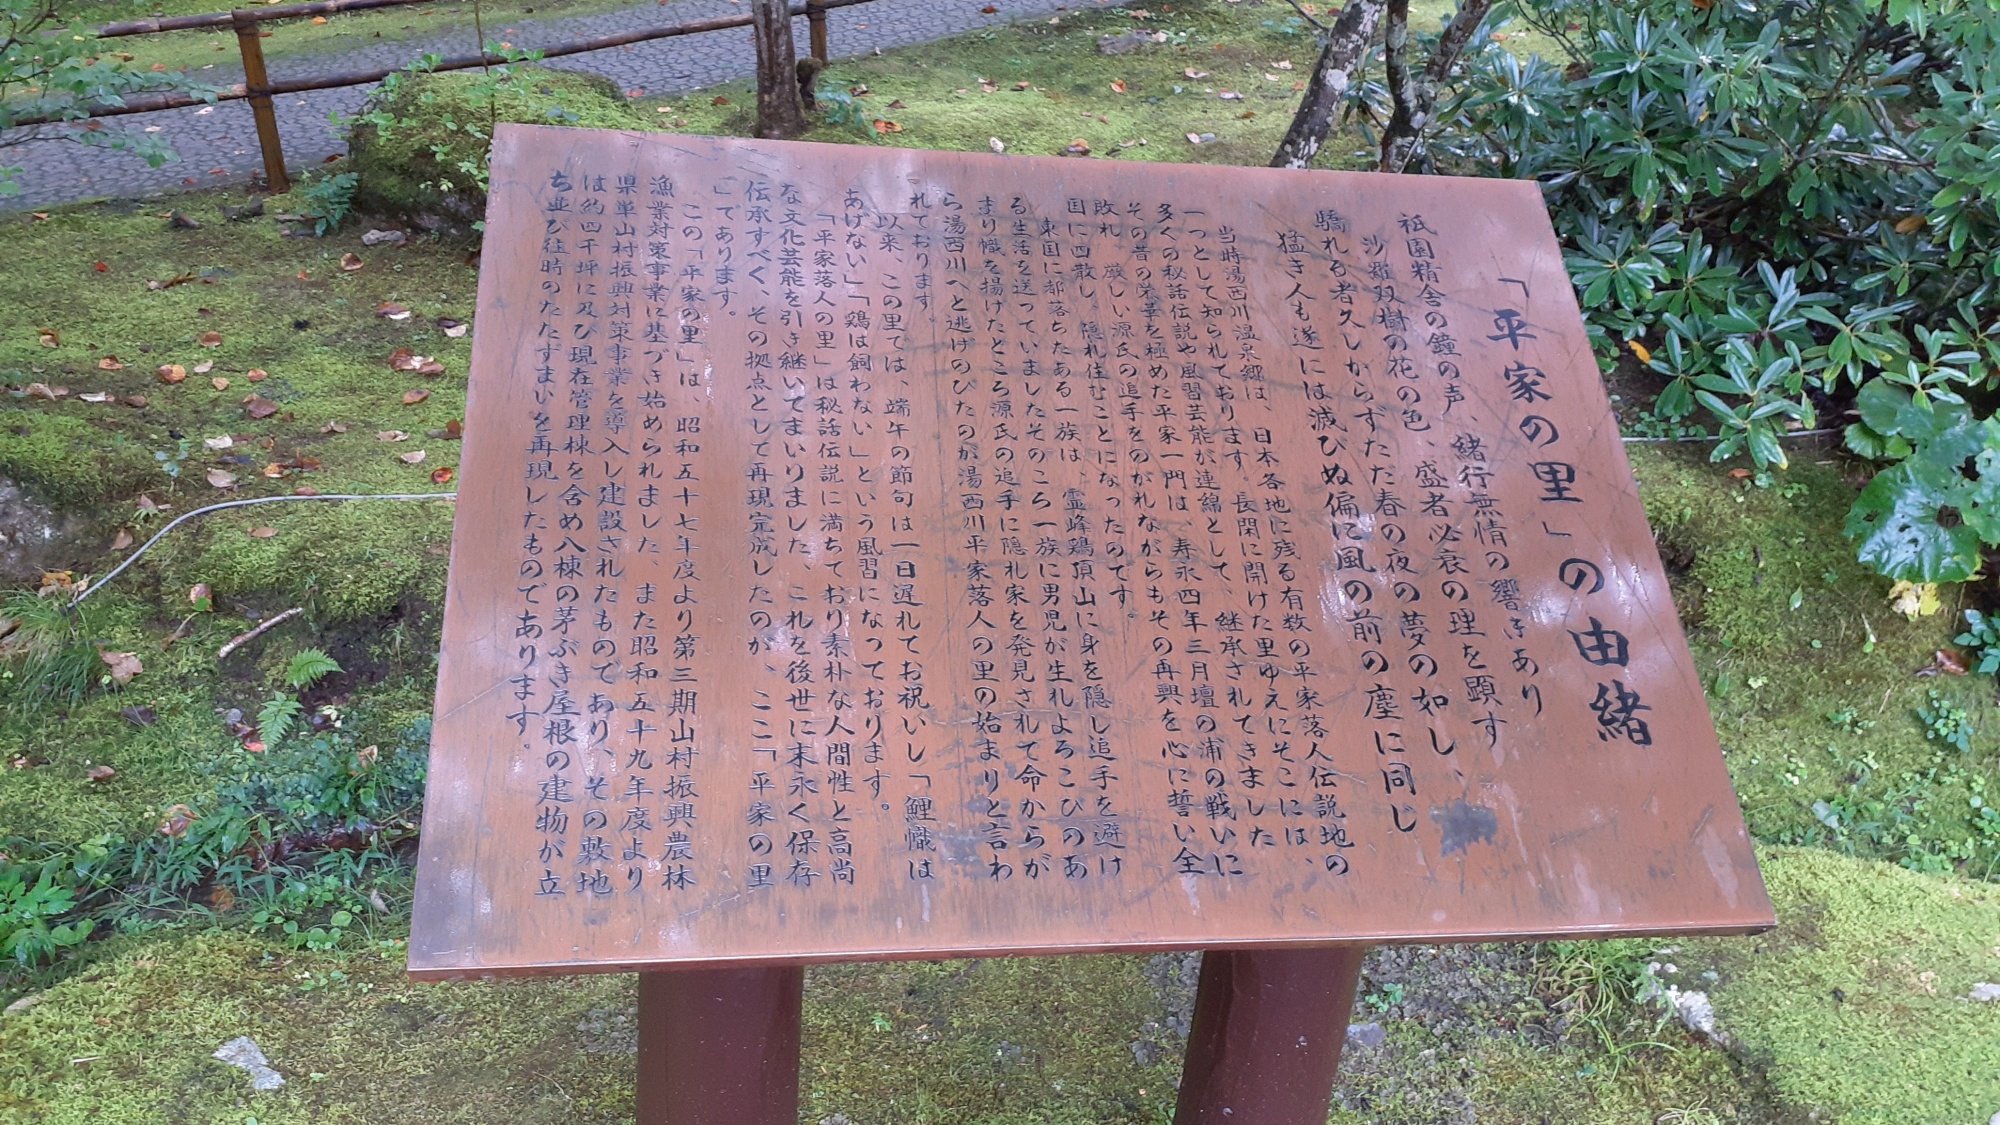 「平家の里」の由緒
祇園精舎の鐘の声、緒行無情の響きあり
沙羅双樹の花の色、盛者必衰の理を顕す
驕れる者久しからずただ春の夜の夢の如し、
猛き人も遂には滅びぬ偏に風の前の塵に同じ
当時湯西川温泉郷は、日本各地に残る有数の平家落人伝説地の
一つとして知られております。長閑に開けた里ゆえにそこには、
多くの秘話伝説や風習芸能が連綿として、継承されてきました
その昔の栄華を極めた平家一門は、寿永四年三月壇の浦の戦いに
敗れ、厳しい源氏の追手をのがれながらもその再興を心に誓い全
国に四散し、隠れ住むことになったのです。
東国に部落ちたある一族は、霊峰鶏頂山に身を隠し追手を避け
る生活を送っていましたそのころ一族に男児が生れよろこびのあ
まり幟を揚げたところ源氏の追手に隠れ家を発見されて命からが
ら湯西川へと逃げのびたのが湯西川平家落人の里の始まりと言わ
れております。
以来、この里では、端午の節句は一日遅れてお祝いし「鯉幟は
あげない」「鶏は飼わない」という風習になっております。
「平家落人の里」は秘話伝説に満ちており素朴な人間性と高尚
な文化芸能を引き継いてまいりました、これを後世に末永く保存
伝承すべく、その拠点として再現完成したのが、ここ「平家の里
」であります。
この「平家の里」は、昭和五十七年度より第三期山村振興農林
漁業対策事業に基づき始められました、また昭和五十九年度より
県単山村振興対策事業を導入し建設されたものであり、その敷地
は約四千坪に及び現在管理棟を含め八棟の茅ぶき屋根の建物が立
ち並び往時のたたずまいを再現したものであります。